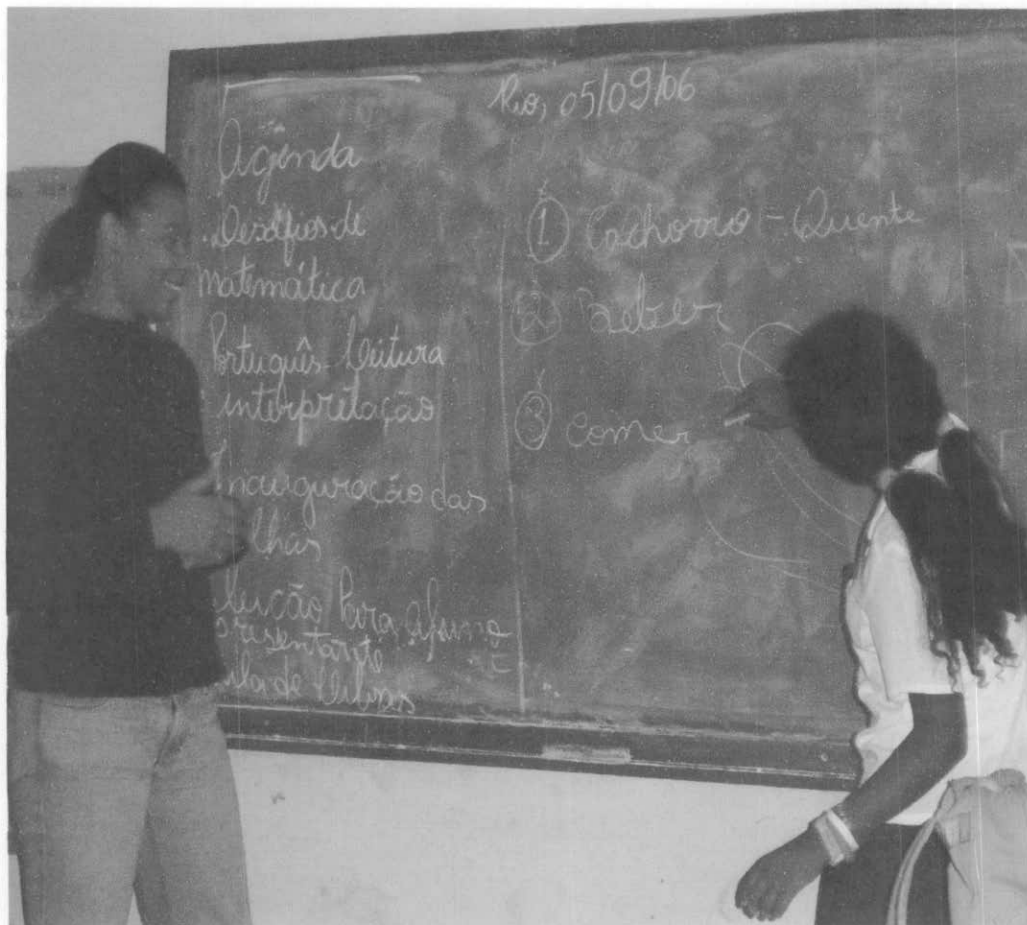 Rio, 05/09/06
Agenda
. Desafios de
matemática
Português - Leitura
interpretação
Inauguração das
lhas
leição Para Aluno
presentante
ula de Libras
① Cachorro - Quente
② Beber
③ Comer